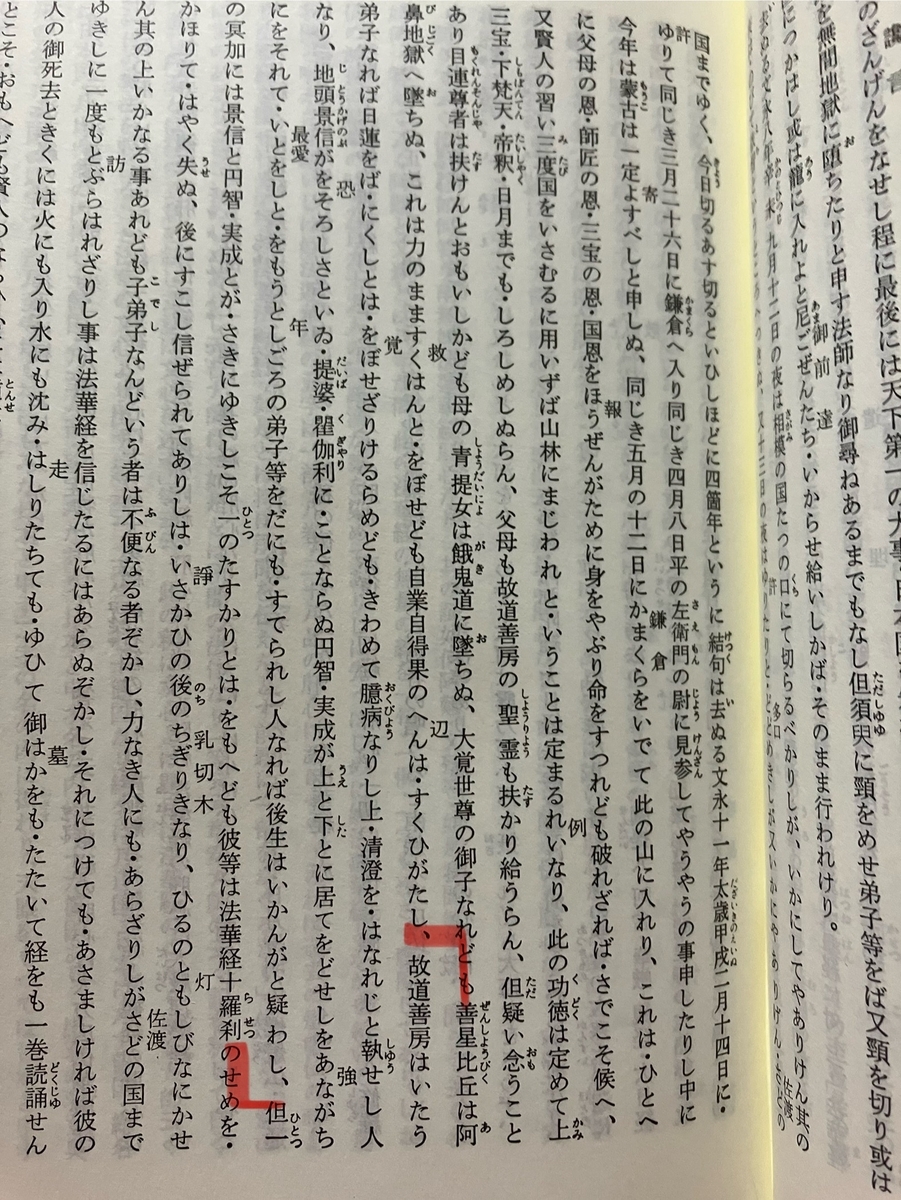 のざんげんをなせし程に最後には天下第一の大事・日本国
を無間地獄に堕ちたりと申す法師なり御尋ねあるまでもなし但須臾に頸をめせ弟子等をば又頸を切り或は
につかはし或は籠に入れよと尼ごぜんたち・いからせ給いしかば・そのまま行われけり。
九月十二日の夜は相模の国たつの口にて切らるべかりしが、いかにしてやありけん其の
国までゆく、今日切るあす切るといひしほどに四箇年というに結句は去ぬる文永十一年太歳甲戌二月十四日に・
ゆりて同じき三月二十六日に鎌倉へ入り同じき四月八日平の左衛門の尉に見参してやうやうの事申したりし中に
今年は蒙古は一定よすべしと申しぬ、同じき五月の十二日にかまくらをいでて此の山に入れり、これは・ひとへ
に父母の恩・師匠の恩・三宝の恩・国恩をほうぜんがために身をやぶり命をすつれども破れざれば・さでこそ候へ、
又賢人の習い三度国をいさむるに用いずば山林にまじわれと・いうことは定まるれいなり、此の功徳は定めて上
三宝・下梵天・帝釈・日月までも・しろしめしぬらん、父母も故道善房の聖霊も扶かり給うらん、但疑い念うこと
あり目連尊者は扶けんとおもいしかども母の青提女は餓鬼道に墜ちぬ、大覚世尊の御子なれども善星比丘は阿
鼻地獄へ墜ちぬ、これは力のまますくはんと・をぼせども自業自得果のへんは・すくひがたし、故道善房はいたう
弟子なれば日蓮をば・にくしとは・をぼせざりけるらめども・きわめて臆病なりし上・清澄を・はなれじと執せし人
なり、地頭景信がをそろしさといゐ・提婆・瞿伽利に・ことならぬ円智・実成が上と下とに居てをどせしをあながち
にをそれて・いとをしと・をもうとしごろの弟子等をだにも・すてられし人なれば後生はいかんがと疑わし、但一
の冥加には景信と円智・実成とが・さきにゆきしこそ一のたすかりとは・をもへども彼等は法華経十羅刹のせめを・
かほりて・はやく失ぬ、後にすこし信ぜられてありしは・いさかひの後のちぎりきなり、ひるのともしびなにかせ
ん其の上いかなる事あれども子弟子なんどいう者は不便なる者ぞかし、力なき人にも・あらざりしがさどの国まで
ゆきしに一度もとぶらはれざりし事は法華経を信じたるにはあらぬぞかし・それにつけても・あさましければ彼の
人の御死去ときくには火にも入り水にも沈み・はしりたちても・ゆひて御はかをも・たたいて経をも一巻読誦せん
とこそ・おもへども賢人のならひ